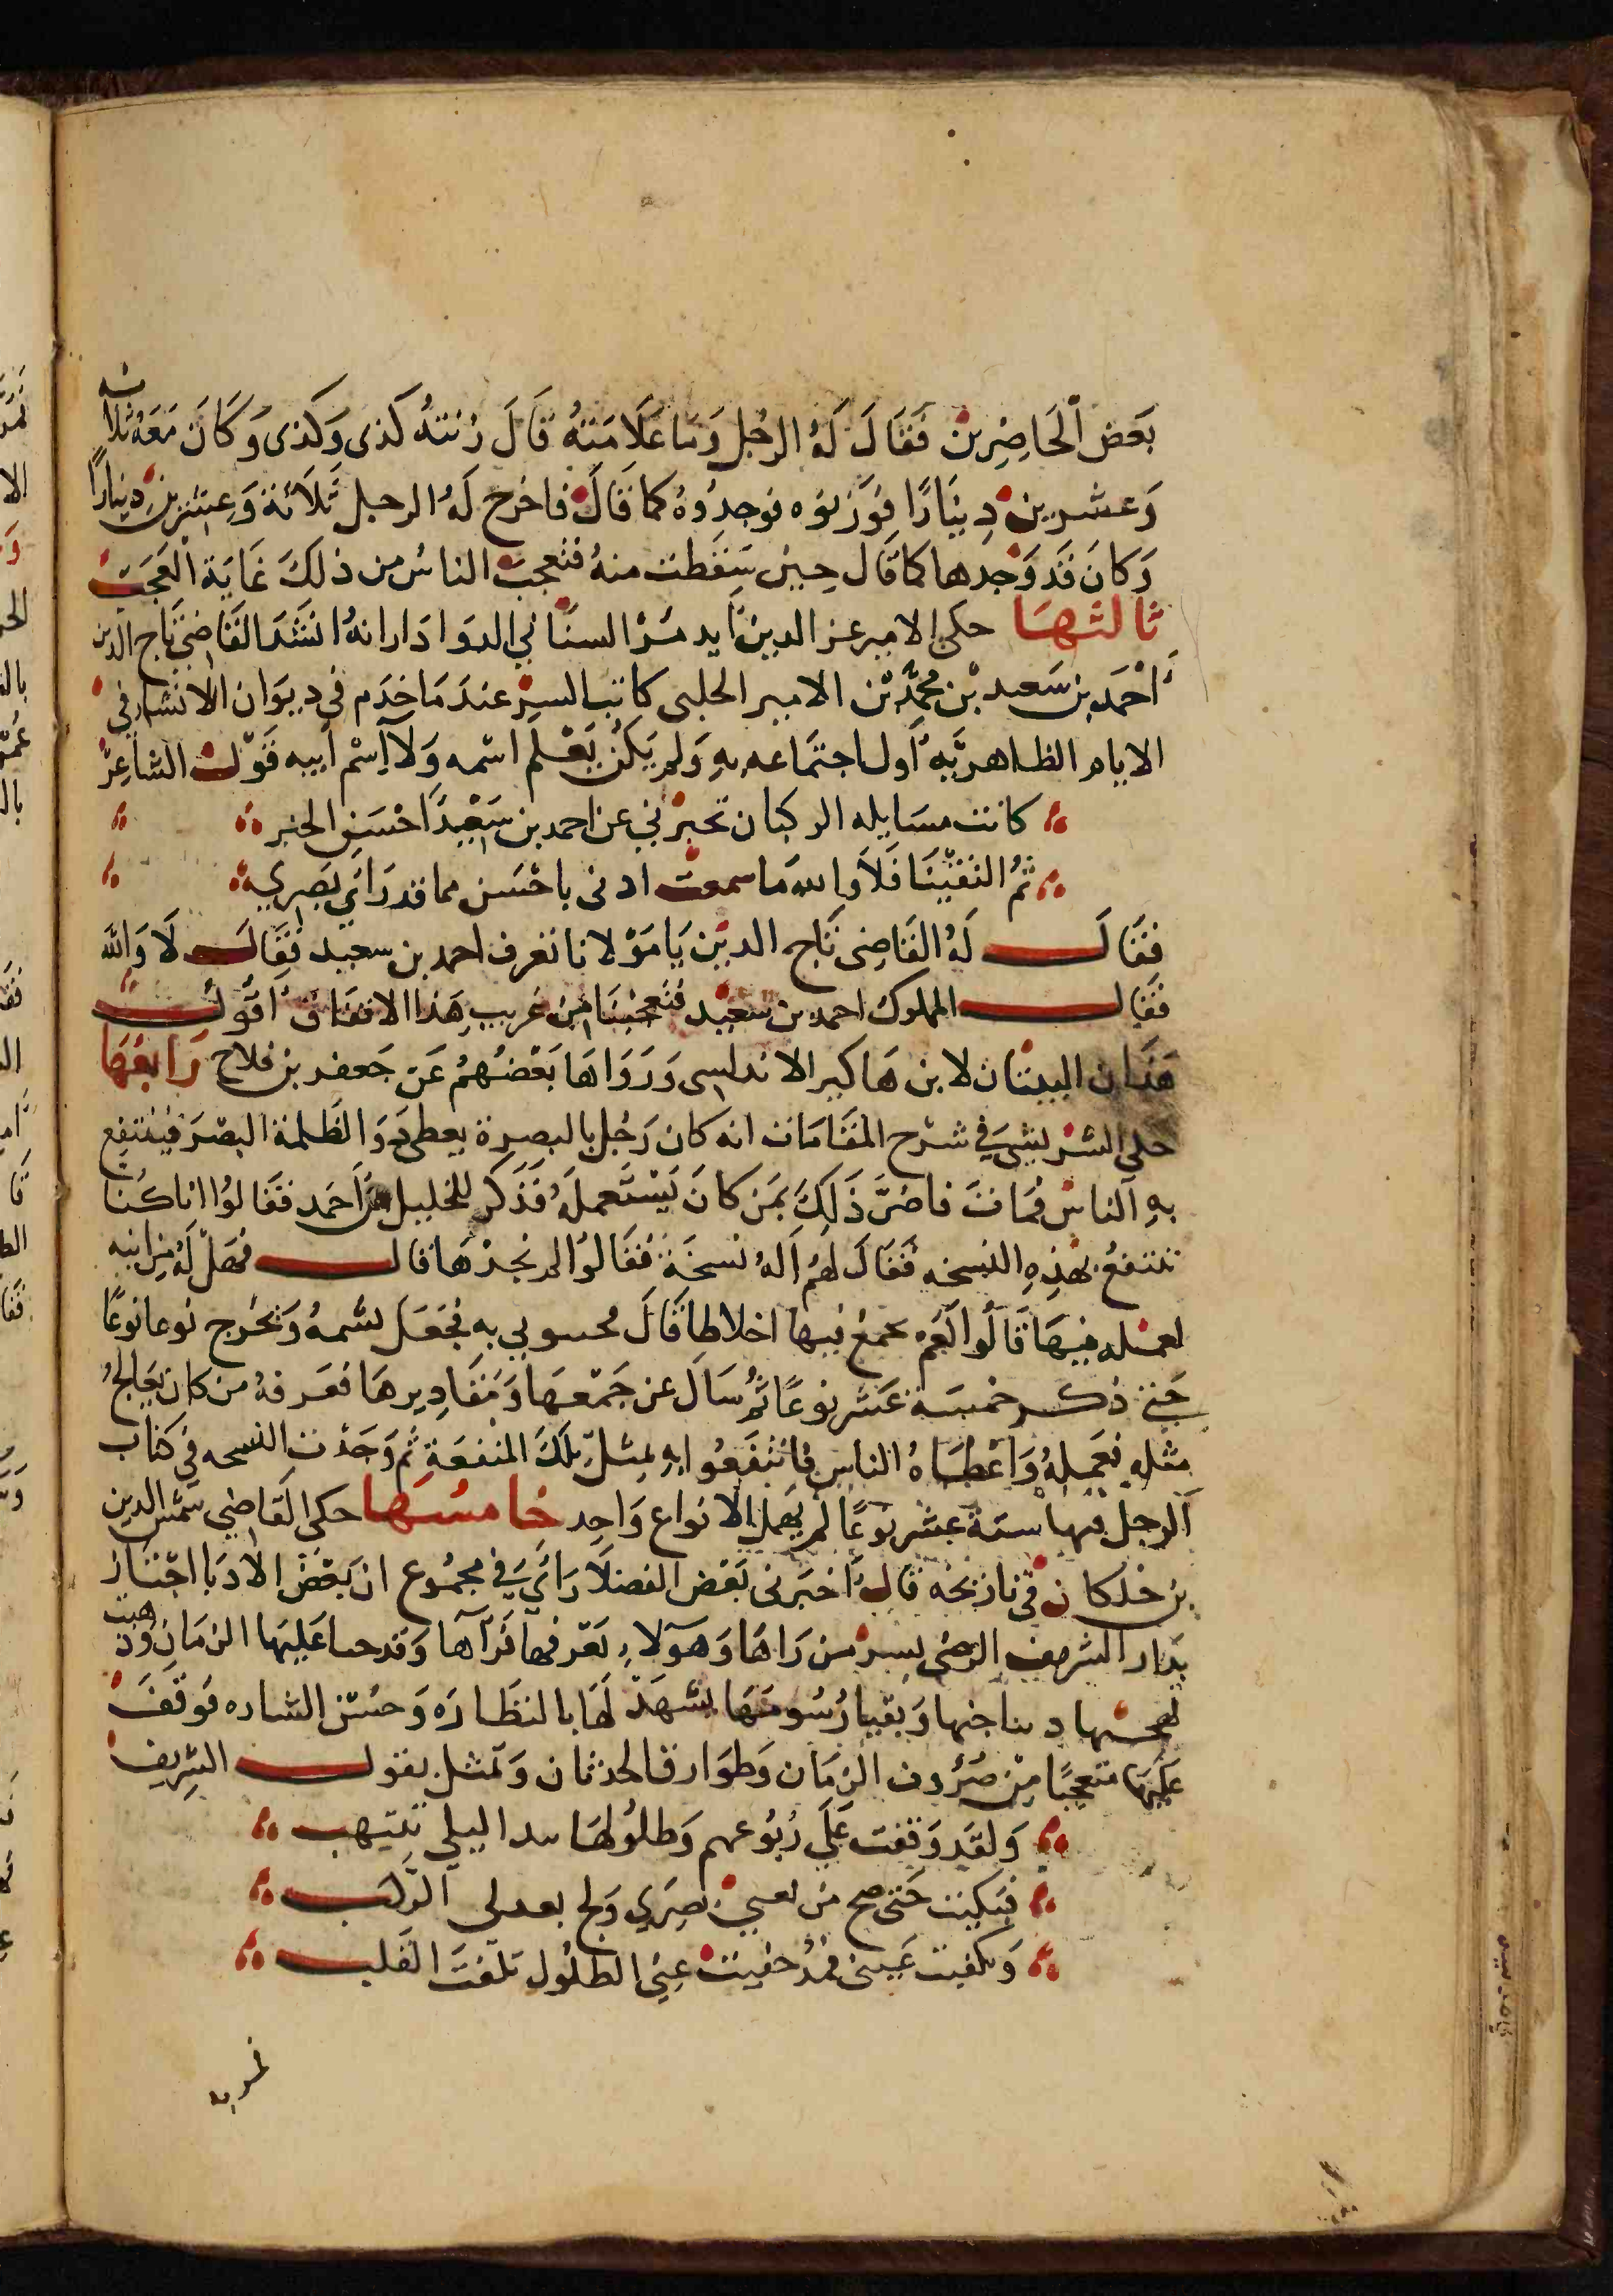 بَعض اْلحَاضِرِينْ فَقَالَ لَهُ الرجُل وَما عَلَامَتهُ قَالَ زنتهُ كَذى وَكَذى وَكَانَ مَعَهُ ثلاثه
وَعشرينْ دِينَارًا فوَزَنوه فوجدُوهُ كما قَالَ فاخرج لَهُ الرجل ثَلاثةً وَعِشرينْ دِينارًا
وَكانَ قَد وَجدها كما قَال حِين سَقطت منهُ فتعجبَ الناسُ من ذلكَ غَايَةَ العَجَبْ
ثالثهَا حكى الامير عز الدين ايدمُرْ السنَاني الدوادار انهُ انشَدَ القَاضي تاج الدين
احْمَد بن سَعيد بْن محمَّد بْن الامير الحلبى كاتب السِرْ عندَ مَا خدَم في ديوَان الانشا في
الايام الظاهريَّةِ اول اجتمَاعه بهِ وَلم يَكنْ يَعْلم اسْمه وَلا اِسْم ابيه قَوْلَ الشاعِرْ
كانت مسَايله الركبان تخبرْني عن احمد بن سَعِيدٍ احْسَن الخبر
ثمُ التقيْنَا فَلاَ والله مَا سمعتْ ادنى باحْسَن مما قد رَاىَ بَصَري
فقَالَ لَهُ القَاضِى تَاج الدين يَا مَوْلانا تعرف احمد بن سعيد فقَال لَا وَالله
فقَال المملوك احمد بن سَعيد فتعجبْنَا مِن غريب هَذا الاتفاق اقولُ
هَذان البيتَان لابن هَاكير الاندلسى وَرَوَاهَا بَعْضُهمْ عَن جَعفر بن فلاح رَابعُهَا
حكى الشريشىَ في شرح المقَامَات انه كان رَجُل بالبصرة يعطى دَوَا لظُلمة البصَرَ فينتفع
بهِ الناسْ فمَاتَ فاضرَّ ذَلِكَ بمَن كانَ يَسْتَعملهُ فَذَكر للخليل بن اَحمَد فقالوُا انا كُنا
ننتفعُ بهذِهِ النسخه فَقَالَ لهمُ اَلهُ نسخَة فقَالوُا لم نجدْهَا قال فهَلْ لَهُ من انيه
لعمله فيهَا قَالُوا نَعَم يجمعُ فيها اخلاطا قَالَ فجيوني به فجَعَلَ يشُمهُ وَيخرج نوعا نوعًا
حَتى ذكر خمسَة عَشر نوعًا ثمُ سَالَ عن جَمْعهَا وَمَقَاديرهَا فعَرفهُ من كان يعَالجُ
مثله فعَملهُ وَاعْطاهُ الناس فانتفَعُوا بهِ بمثل تِلكَ المنفعَةِ ثم وَجَدْت النسخه في كتاب
الرجل فيها ستة عشر نوعًا لم يهمل الا نواع وَاحد خامسُهَا حكى القَاضِي شمْس الدين
بن خلكان في تاريخه قالَ اخبَرنى بَعْض الفضلَا رَاىَ في مجمُوع ان بَعْض الادبَا اجتَاز
بدَار الشريف الرضى بسر من رَاهَا وَهوَلاءِ يَعرفها فرَآها وَقد حنا عَليَها الزمَان وَذهبت
بهجتها وَبقيا رُسُومَهَا تشهَدْ لهَا بالنظَارَه وَحسْن الشاره فوَقَفَ
عَليَها متعجبًا مِنْ صُرُوف الزمَان وَطوَارق الحدثان وَتمثل بقول الشريف
وَلقَد وَقفت عَلَى رُبُوعهم وَطلُولهَا بيد البلى تنتهب
فبَكيت حَتى ضج من لغبي بصري وَلج بعدلى الركب
وَتلفت عَيني فمُذ خَفيتْ عني الطلُول تلفتَ القَلب